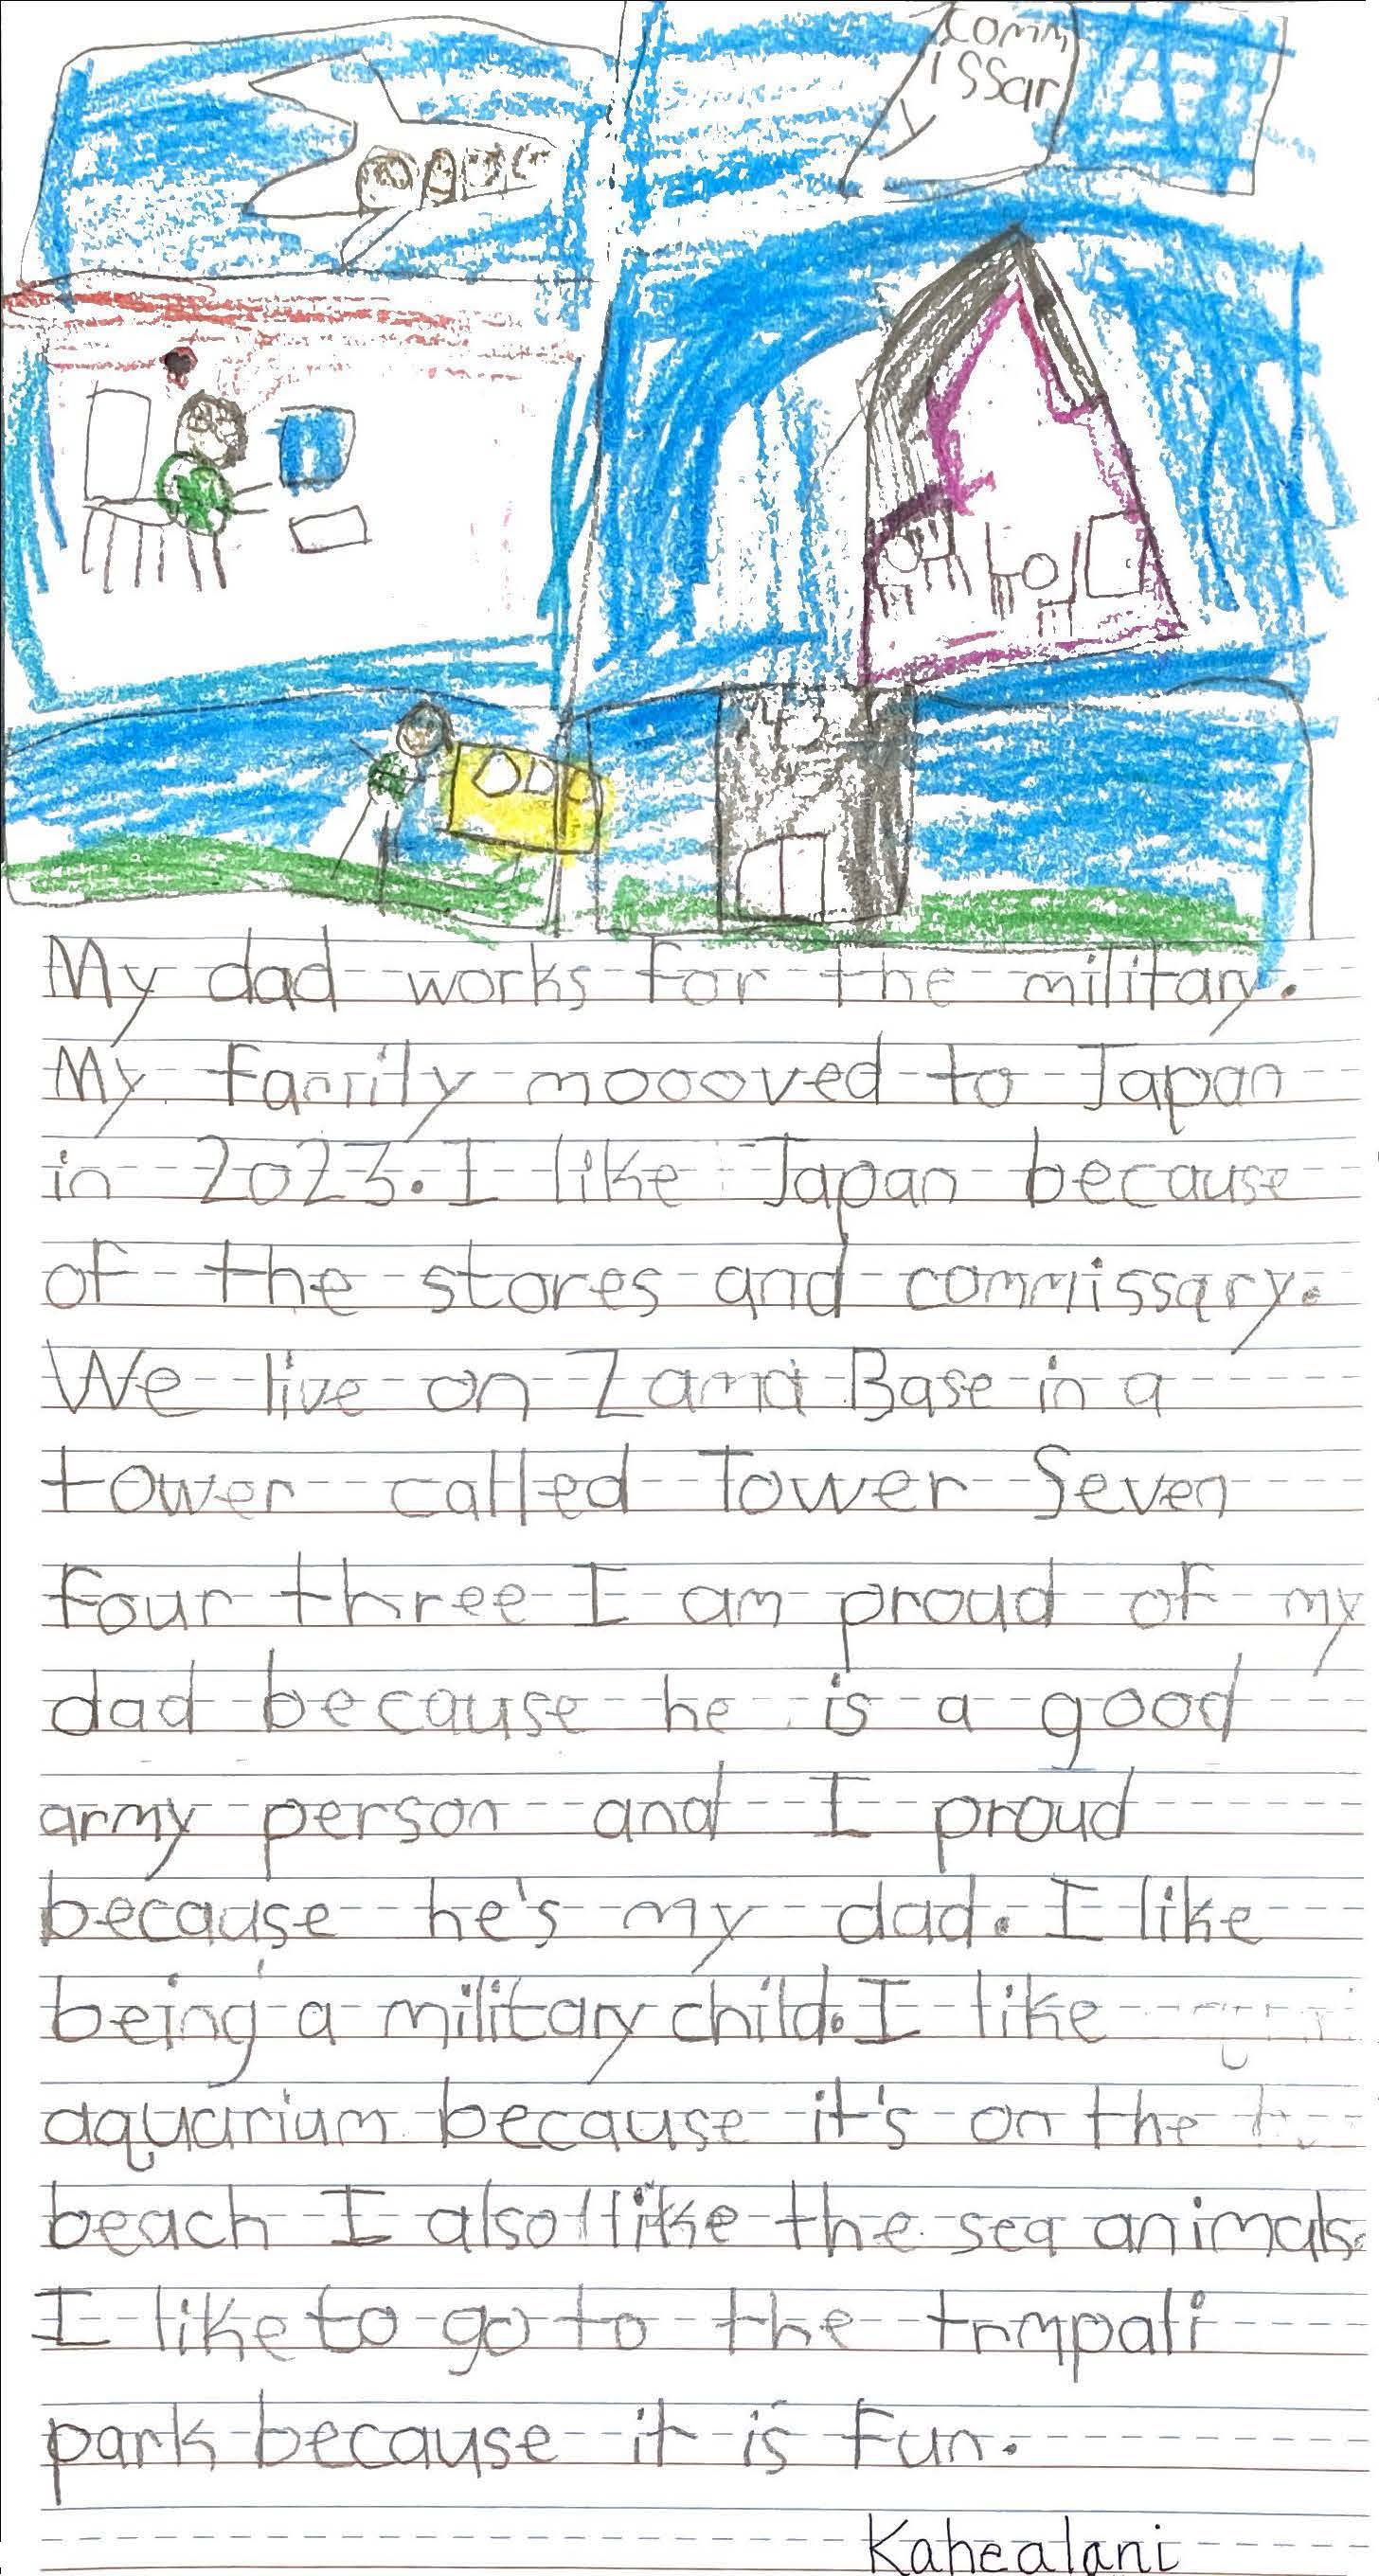 comm
issar
y
743
My dad works for the military.
My family moooved to Japan
in 2023. I like Japan because
of the stores and commissary.
We live on Zama Base in a
tower called Tower Seven
four three I am proud of my
dad because he is a good
army person and I proud
because he's my dad. I like
being a military child. I like
aquarium because it's on the
beach I also like the sea animals.
I like to go to the trmpali
park because it is fun.
Kahealani